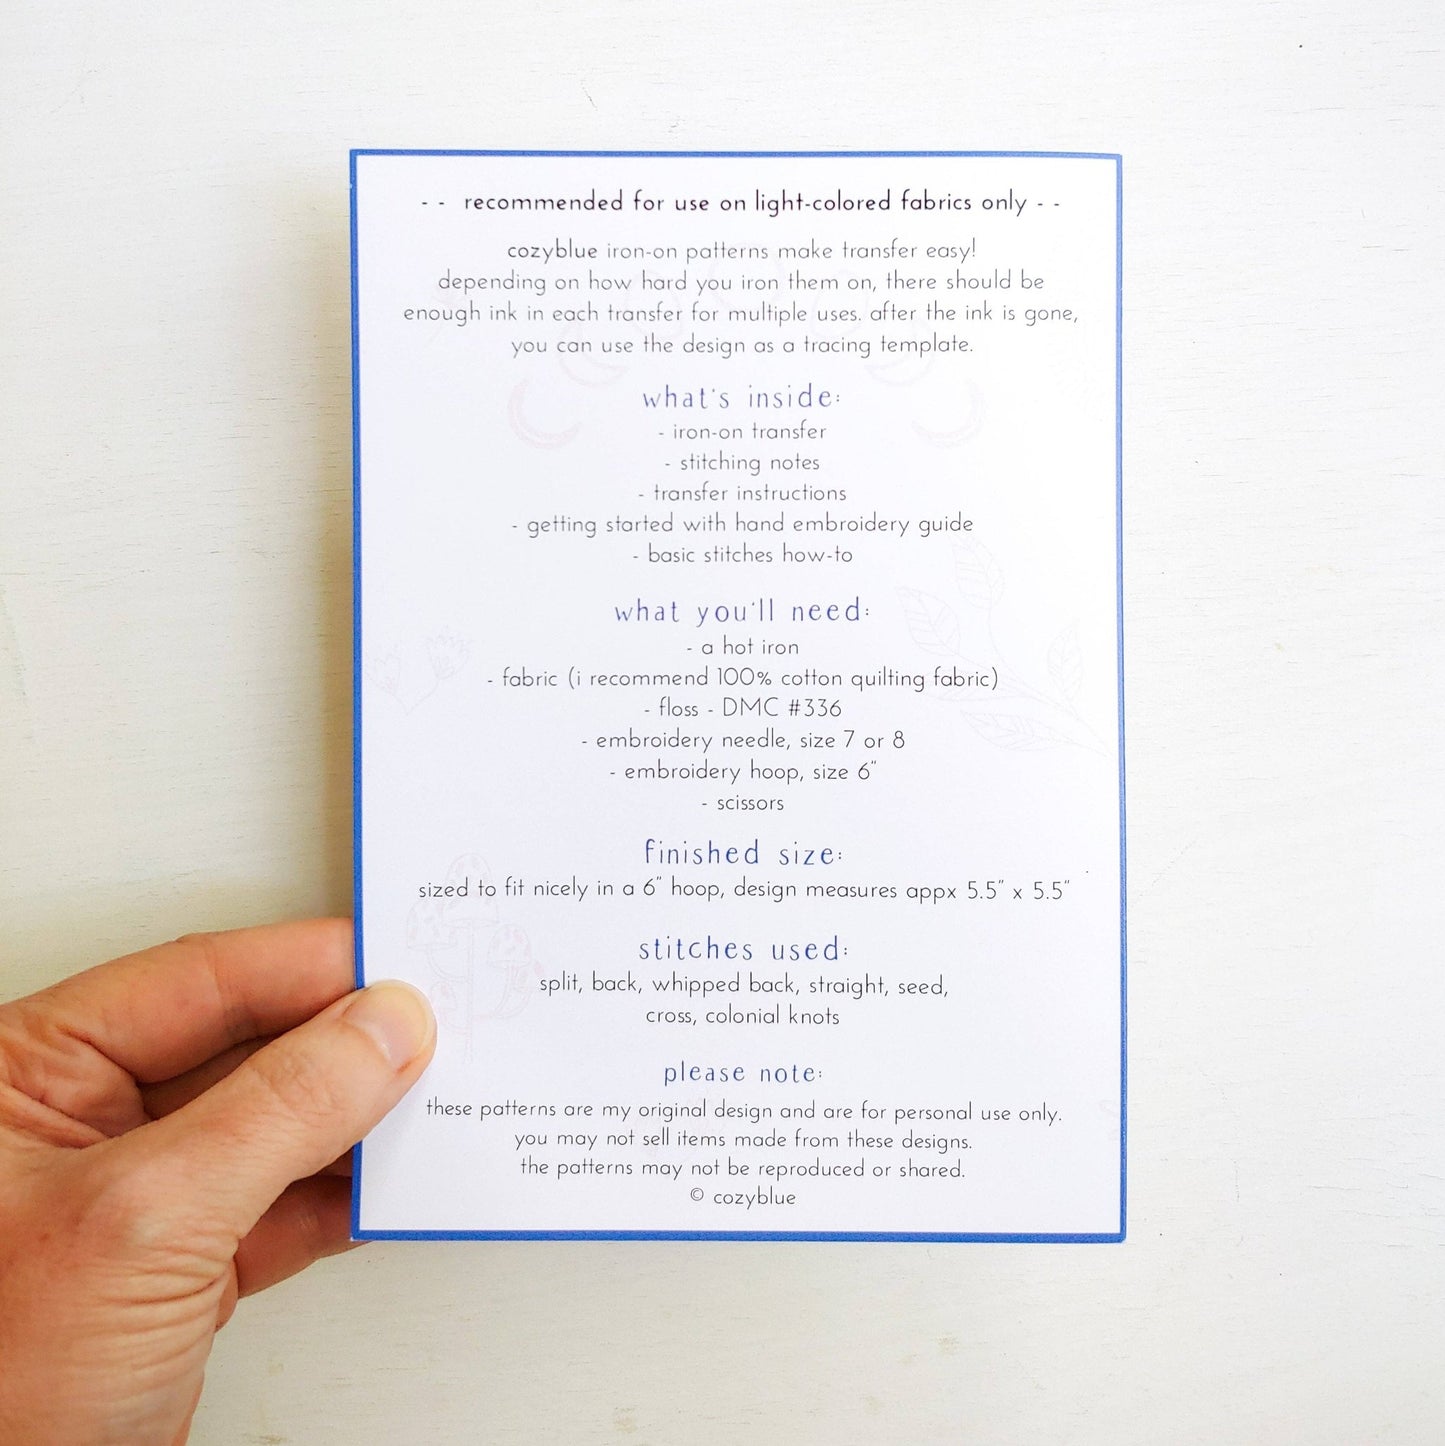 - - recommended for use on light-colored fabrics only - -
cozyblue iron-on patterns make transfer easy!
depending on how hard you iron them on, there should be
enough ink in each transfer for multiple uses. after the ink is gone,
you can use the design as a tracing template.
what's inside:
- iron-on transfer
- stitching notes
- transfer instructions
- getting started with hand embroidery guide
- basic stitches how-to
what you'll need:
- a hot iron
- fabric (i recommend 100% cotton quilting fabric)
- floss - DMC #336
- embroidery needle, size 7 or 8
- embroidery hoop, size 6"
- scissors
finished size:
sized to fit nicely in a 6" hoop, design measures appx 5.5" x 5.5"
stitches used:
split, back, whipped back, straight, seed,
cross, colonial knots
please note:
these patterns are my original design and are for personal use only.
you may not sell items made from these designs.
the patterns may not be reproduced or shared.
© cozyblue